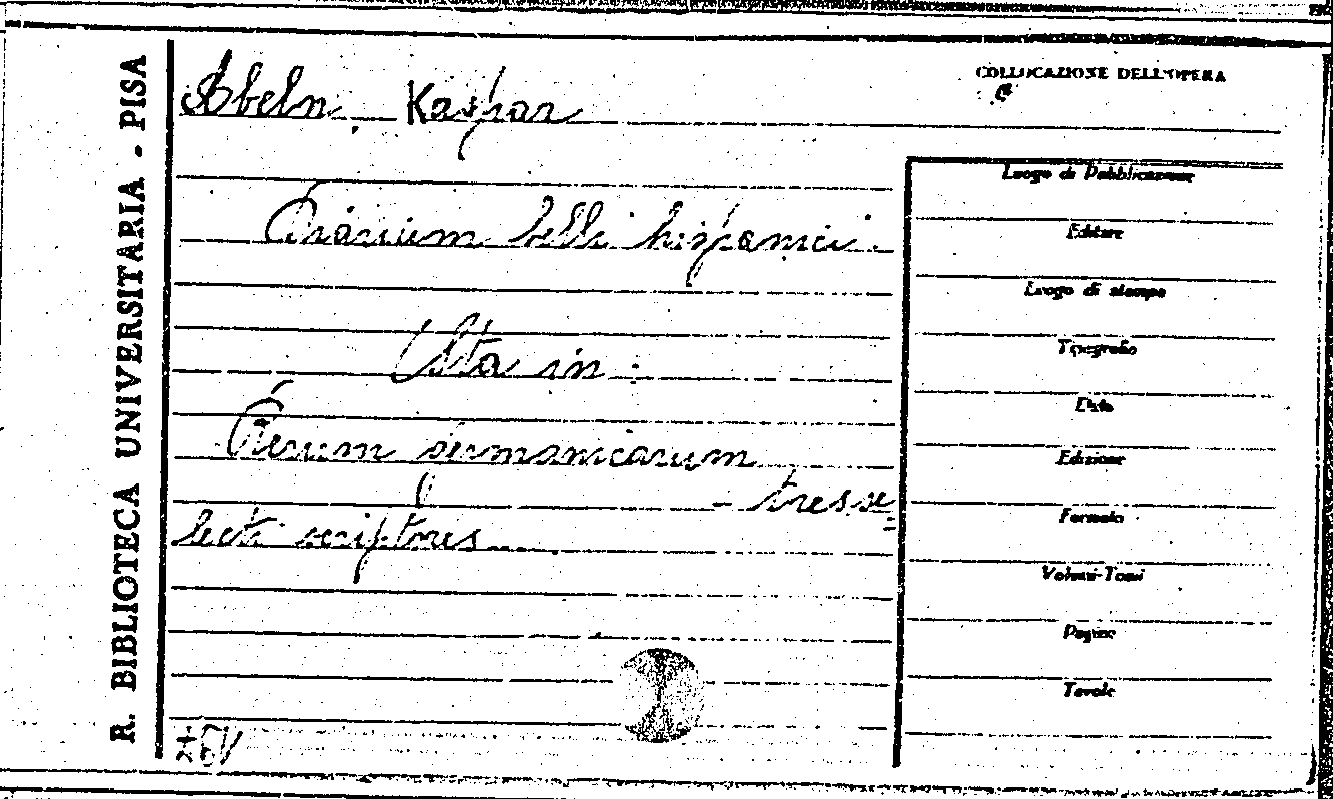 R. BIBLIOTECA UNIVERSITARIA - PISA
COLLOCAZIONE DELL'OPERA
Abeln, Kaspar
Diarium belli hispanici.
Sta in:
Rerum germanicarum
- tres se=
lecti scriptores
Luogo di Pubblicazione
Editore
Luogo di stampa
Tipografia
Data
Edizione
Formato
Volumi-Tomi
Pagine
Tavole